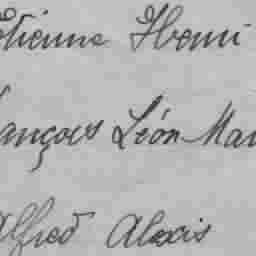 Etienne Henri
François Léon Mar
Alfred Alexis